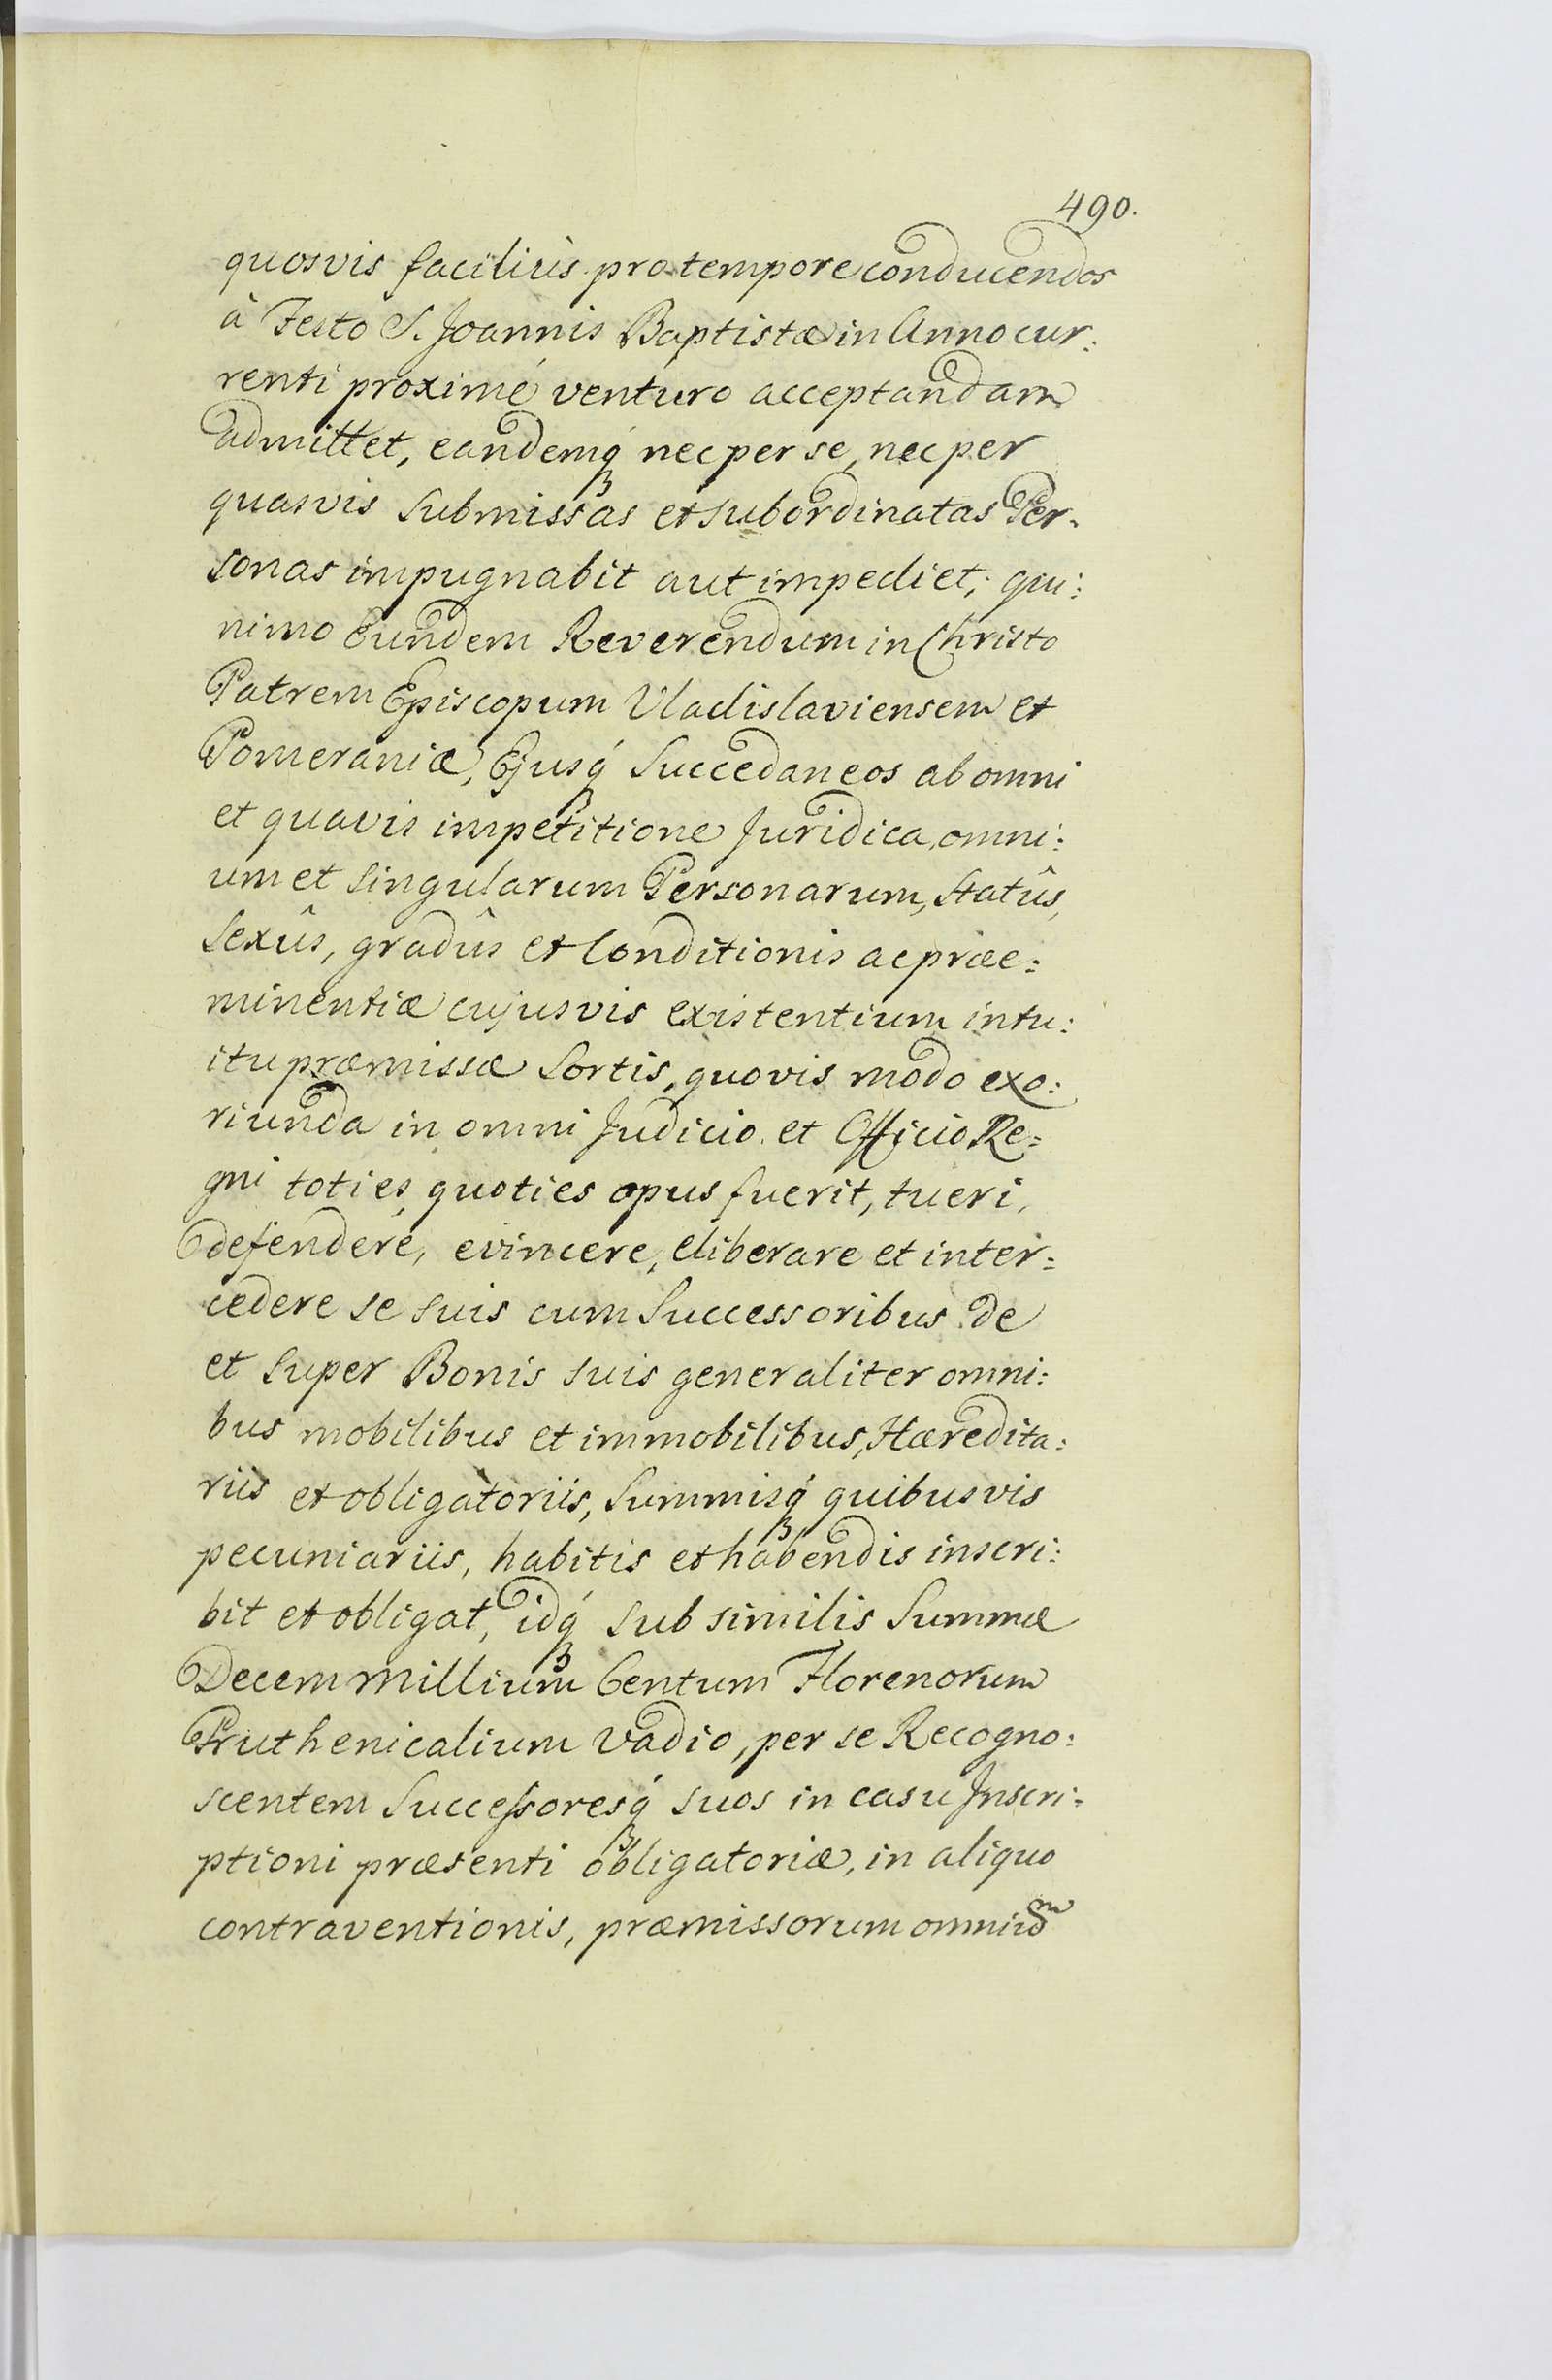 490.
quosvis faciliùs pro tempore conducendos
à Festo S. Joannis Baptistæ in Anno cur:
renti proximé venturo acceptandam
admittet, eandemq́ʒ nec per se, nec per
quasvis submissas et subordinatas Per-
sonas impugnabit aut impediet; qui:
nimo Eundem Reverendum in Christo
Patrem Episcopum Vladislaviensem et
Pomeraniæ, Ejusq́ʒ Succedaneos ab omni
et quavis impetitione Juridica, omni:
um et singularum Personarum, Statûs,
Sexûs, gradûs et Conditionis ac præe:
minentiæ cujusvis existentium intu:
itu præmissæ Sortis, quovis modo exo:
riunda in omni Judicio et Officio Re:
gni toties, quoties opus fuerit, tueri,
defendere, evincere, eliberare et inter:
cedere se suis cum Successoribus de
et super Bonis suis generaliter omni:
bus mobilibus et immobilibus, Hæredita:
riis et obligatoriis, Summisq́ʒ quibusvis
pecuniariis, habitis et habendis inscri:
bit et obligat, idq́ʒ sub similis Summæ
Decem Millium Centum Florenorum
Pruthenicalium Vadio, per se Recogno:
scentem Successoresq́ʒ suos in casu Inscri:
ptioni præsenti obligatoriæ, in aliquo
contraventionis, præmissorum omniũm